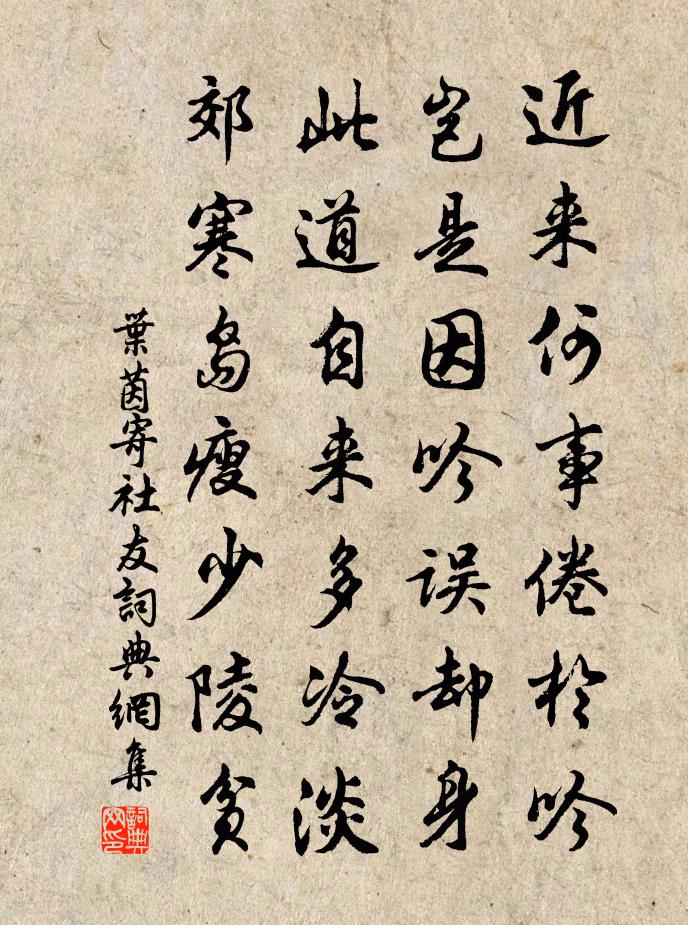 近来何事倦於吟
岂是因吟误却身
此道自来多冷淡
郊寒岛瘦少陵贫
葉茵寄社友詞典網集
詞典網印